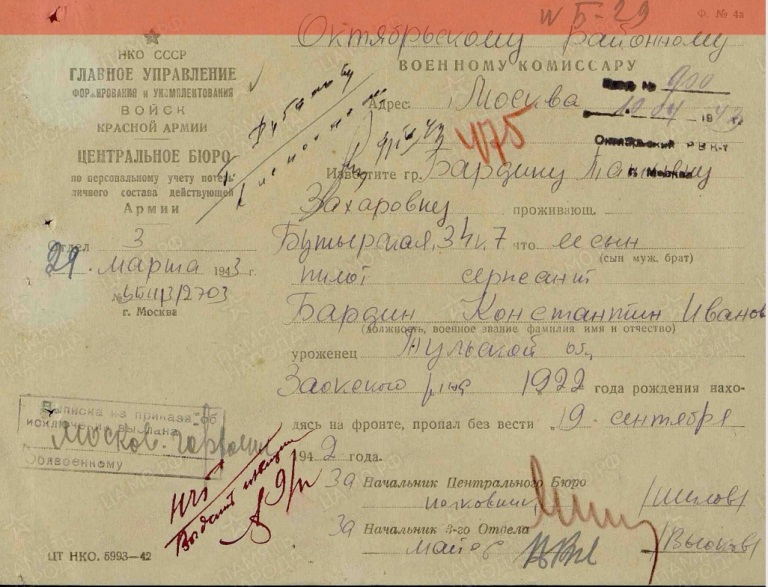 № Б-29
Ф. № 4а
НКО СССР
ГЛАВНОЕ УПРАВЛЕНИЕ
ФОРМИРОВАНИЯ и УКОМПЛЕКТОВАНИЯ
ВОЙСК
КРАСНОЙ АРМИИ
ЦЕНТРАЛЬНОЕ БЮРО
по персональному учету потерь
личного состава действующей
Армии
Отдел 3
29. марта 1943 г.
г. Москва
Октябрьскому районному
ВОЕННОМУ КОМИССАРУ
Адрес: Москва
№ 900
1943
Октябрьский РВК-т
г. Москва
475
Известите гр. Бардину
Захаровну проживающ.
Бутырская, 34 к. 7 что ее сын
(сын муж. брат)
пилот сержант
Бардин Константин Иванов
(должность, военное звание фамилия имя и отчество)
уроженец Тульской об.
Заокского р-на 1922 года рождения нахо-
дясь на фронте, пропал без вести „19 сентября
1942 года.
За Начальник Центрального Бюро
полковник /Шилов/
За Начальник 3-го Отдела
майор
Выписка из приказа об
исключении выслана
Москов.
Облвоенкому
ЦТ НКО. 5993—42